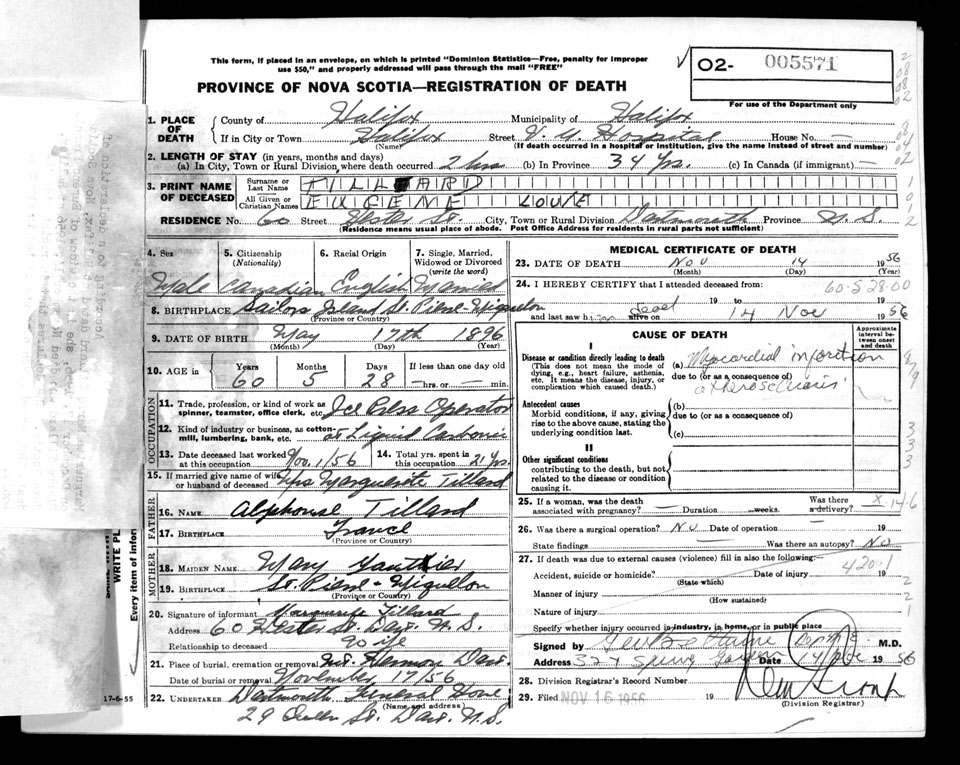 This form, if placed in an envelope, on which is printed "Dominion Statistics—Free, penalty for improper
use $50," and properly addressed will pass through the mail "FREE"
02- 005571
For use of the Department only
PROVINCE OF NOVA SCOTIA—REGISTRATION OF DEATH
1. PLACE OF DEATH
County of Halifax Municipality of Halifax
If in City or Town Halifax Street V. G. Hospital House No. —
(Name) (If death occurred in a hospital or institution, give the name instead of street and number)
2. LENGTH OF STAY (in years, months and days)
(a) In City, Town or Rural Division, where death occurred 2 hrs (b) In Province 34 Yrs. (c) In Canada (if immigrant) —
3. PRINT NAME OF DECEASED
Surname or Last Name TILLARD
All Given or Christian Names EUGENE LOUE
RESIDENCE No. 60 Street Hester St. City, Town or Rural Division Dartmouth Province N.S.
(Residence means usual place of abode. Post Office Address for residents in rural parts not sufficient)
4. Sex Male
5. Citizenship (Nationality) Canadian
6. Racial Origin English
7. Single, Married, Widowed or Divorced (write the word) Married
8. BIRTHPLACE Sailors Island St. Pierre-Miquelon
(Province or Country)
9. DATE OF BIRTH May 17th 1896
(Month) (Day) (Year)
10. AGE in Years 60 Months 5 Days 28 If less than one day old —hrs. or — min.
OCCUPATION
11. Trade, profession, or kind of work as spinner, teamster, office clerk, etc. Ice Press Operator
12. Kind of industry or business, as cotton-mill, lumbering, bank, etc. at Liquid Carbonic
13. Date deceased last worked at this occupation Nov. 1/56
14. Total yrs. spent in this occupation 21 Yrs.
15. If married give name of wife or husband of deceased Mrs Marguerite Tillard
FATHER
16. NAME Alphonse Tillard
17. BIRTHPLACE France
(Province or Country)
MOTHER
18. MAIDEN NAME Mary Gauthier
19. BIRTHPLACE St. Pierre + Miquelon
(Province or Country)
20. Signature of informant Marguerite Tillard
Address 60 Hester St. Dart. N.S.
Relationship to deceased Wife
21. Place of burial, cremation or removal Mt. Hermon Dart.
Date of burial or removal November 17/56
22. UNDERTAKER Dartmouth Funeral Home
(Name and address)
29 Queen St. Dart. N.S.
17-6-55
WRITE PL
Every item of infor
MEDICAL CERTIFICATE OF DEATH
23. DATE OF DEATH Nov 14 1956
(Month) (Day) (Year)
24. I HEREBY CERTIFY that I attended deceased from:
60-5-28-60
19 to 19
and last saw him dead alive on 14 Nov 1956
CAUSE OF DEATH
Approximate interval between onset and death
I
Disease or condition directly leading to death
(This does not mean the mode of dying, e.g., heart failure, asthenia, etc. It means the disease, injury, or complication which caused death.)
(a) Myocardial infarction
due to (or as a consequence of)
Antecedent causes
Morbid conditions, if any, giving rise to the above cause, stating the underlying condition last.
(b)
due to (or as a consequence of)
(c)
II
Other significant conditions
contributing to the death, but not related to the disease or condition causing it.
25. If a woman, was the death associated with pregnancy? — Duration weeks. Was there a delivery?
26. Was there a surgical operation? No Date of operation 19
State findings Was there an autopsy? No
27. If death was due to external causes (violence) fill in also the following:
420.1
Accident, suicide or homicide? Date of injury 19
(State which)
Manner of injury
(How sustained)
Nature of injury
Specify whether injury occurred in industry, in home, or in public place
Signed by M.D.
Address Date 19 56
28. Division Registrar's Record Number
29. Filed NOV 16 1956 19
(Division Registrar)